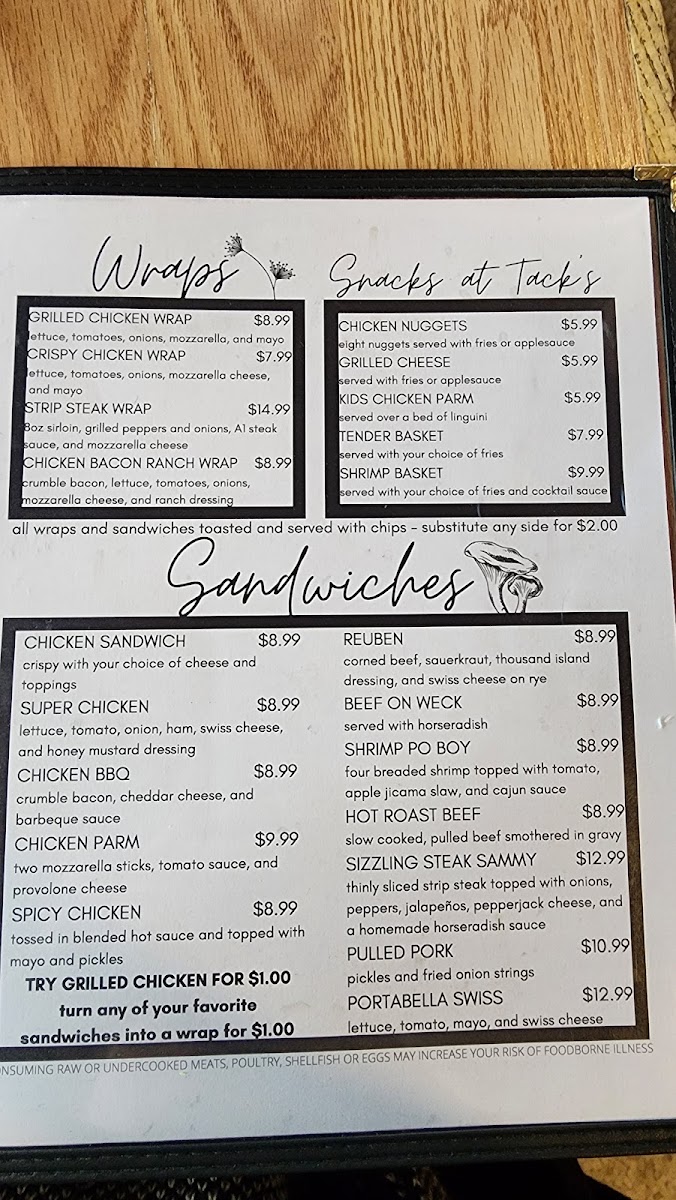 Wraps
GRILLED CHICKEN WRAP $8.99
lettuce, tomatoes, onions, mozzarella, and mayo
CRISPY CHICKEN WRAP $7.99
lettuce, tomatoes, onions, mozzarella cheese,
and mayo
STRIP STEAK WRAP $14.99
8oz sirloin, grilled peppers and onions, A1 steak
sauce, and mozzarella cheese
CHICKEN BACON RANCH WRAP $8.99
crumble bacon, lettuce, tomatoes, onions,
mozzarella cheese, and ranch dressing
Snacks at Tack's
CHICKEN NUGGETS $5.99
eight nuggets served with fries or applesauce
GRILLED CHEESE $5.99
served with fries or applesauce
KIDS CHICKEN PARM $5.99
served over a bed of linguini
TENDER BASKET $7.99
served with your choice of fries
SHRIMP BASKET $9.99
served with your choice of fries and cocktail sauce
all wraps and sandwiches toasted and served with chips - substitute any side for $2.00
Sandwiches
CHICKEN SANDWICH $8.99
crispy with your choice of cheese and
toppings
SUPER CHICKEN $8.99
lettuce, tomato, onion, ham, swiss cheese,
and honey mustard dressing
CHICKEN BBQ $8.99
crumble bacon, cheddar cheese, and
barbeque sauce
CHICKEN PARM $9.99
two mozzarella sticks, tomato sauce, and
provolone cheese
SPICY CHICKEN $8.99
tossed in blended hot sauce and topped with
mayo and pickles
TRY GRILLED CHICKEN FOR $1.00
turn any of your favorite
sandwiches into a wrap for $1.00
REUBEN $8.99
corned beef, sauerkraut, thousand island
dressing, and swiss cheese on rye
BEEF ON WECK $8.99
served with horseradish
SHRIMP PO BOY $8.99
four breaded shrimp topped with tomato,
apple jicama slaw, and cajun sauce
HOT ROAST BEEF $8.99
slow cooked, pulled beef smothered in gravy
SIZZLING STEAK SAMMY $12.99
thinly sliced strip steak topped with onions,
peppers, jalapeños, pepperjack cheese, and
a homemade horseradish sauce
PULLED PORK $10.99
pickles and fried onion strings
PORTABELLA SWISS $12.99
lettuce, tomato, mayo, and swiss cheese
ONSUMING RAW OR UNDERCOOKED MEATS, POULTRY, SHELLFISH OR EGGS MAY INCREASE YOUR RISK OF FOODBORNE ILLNESS